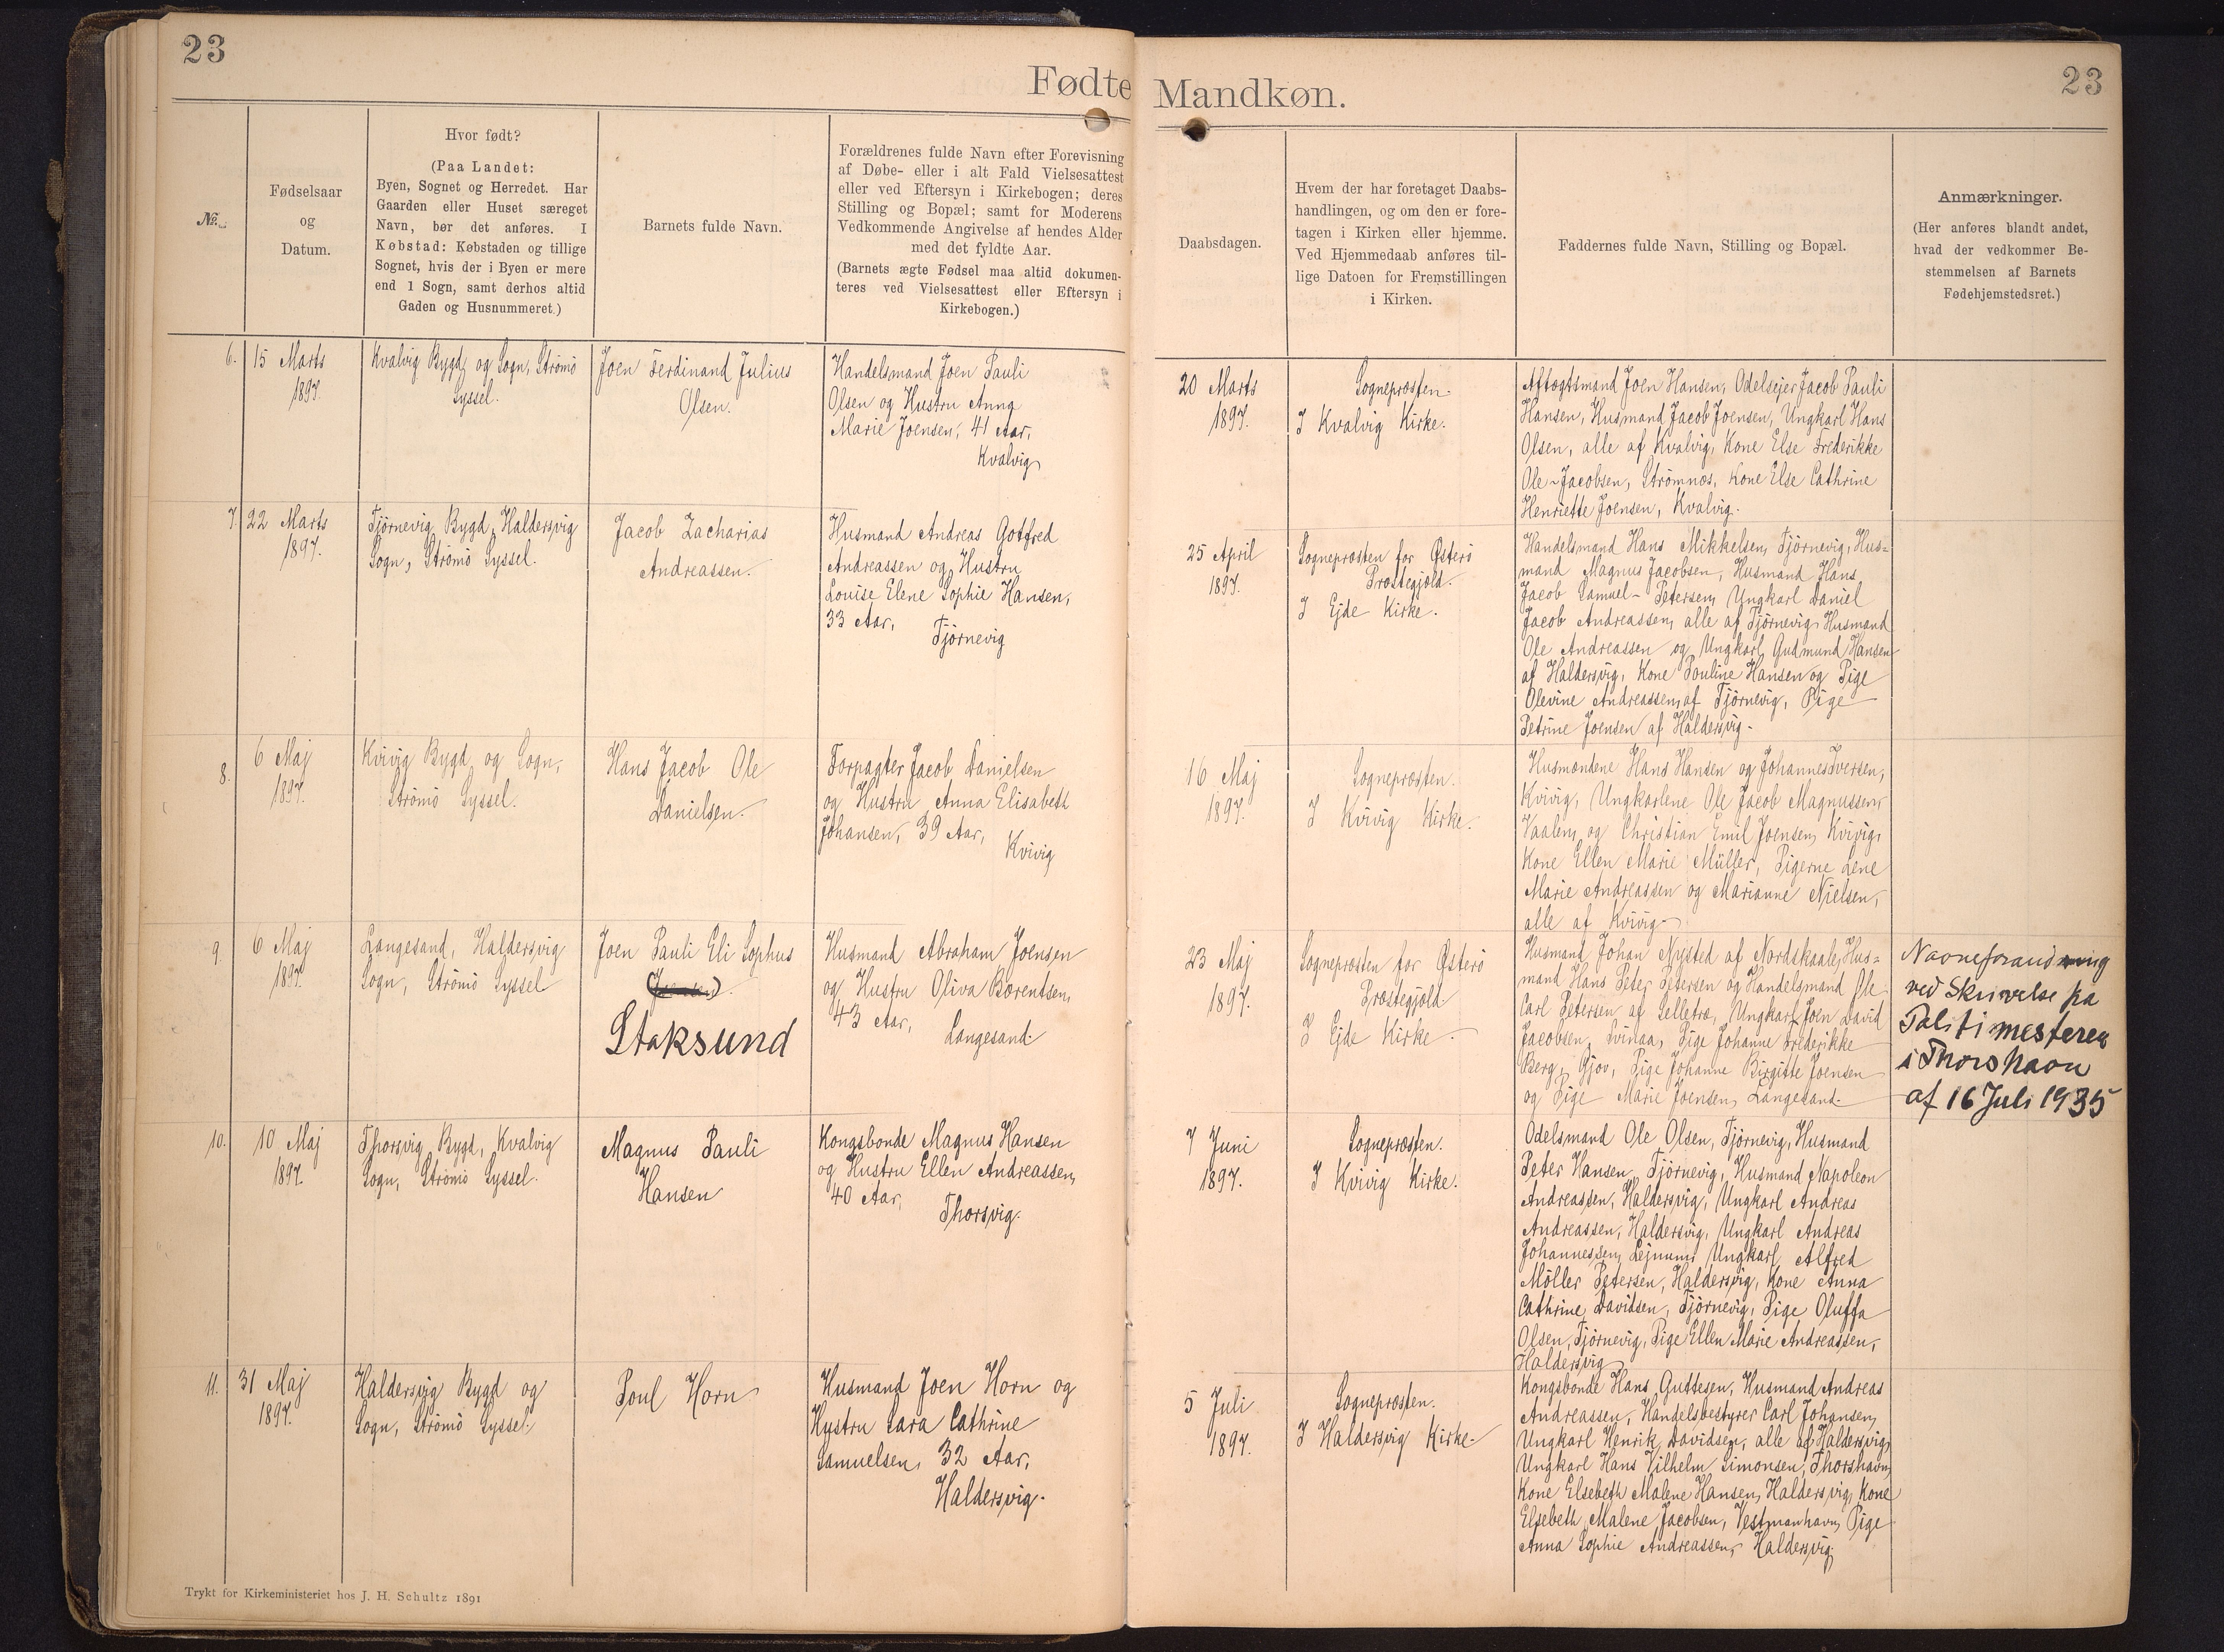 23
Fødte
Mandkøn.
23
№.
Fødselsaar
og
Datum.
Hvor født?
(Paa Landet:
Byen, Sognet og Herredet. Har
Gaarden eller Huset særeget
Navn, bør det anføres. I
Købstad: Købstaden og tillige
Sognet, hvis der i Byen er mere
end 1 Sogn, samt derhos altid
Gaden og Husnummeret.)
Barnets fulde Navn.
Forældrenes fulde Navn efter Forevisning
af Døbe- eller i alt Fald Vielsesattest
eller ved Eftersyn i Kirkebogen; deres
Stilling og Bopæl; samt for Moderens
Vedkommende Angivelse af hendes Alder
med det fyldte Aar.
(Barnets ægte Fødsel maa altid dokumen-
teres ved Vielsesattest eller Eftersyn i
Kirkebogen.)
Daabsdagen.
Hvem der har foretaget Daabs-
handlingen, og om den er fore-
tagen i Kirken eller hjemme.
Ved Hjemmedaab anføres til-
lige Datoen for Fremstillingen
i Kirken.
Faddernes fulde Navn, Stilling og Bopæl.
Anmærkninger.
(Her anføres blandt andet,
hvad der vedkommer Be-
stemmelsen af Barnets
Fødehjemstedsret.)
6.
15 Marts
1897.
Kvalvig Bygd og Sogn, Strömö
Syssel.
Joen Ferdinand Julius
Olsen.
Handelsmand Joen Pauli
Olsen og Hustru Anna
Marie Joensen, 41 Aar,
Kvalvig
20 Marts
1897.
Sognepræsten.
I Kvalvig Kirke.
Aftægtsmand Joen Hansen, Odelsejer Jacob Pauli
Hansen, Husmand Jacob Joensen, Ungkarl Hans
Olsen, alle af Kvalvig, Kone Else Frederikke
Ole-Jacobsen, Strömnæs, Kone Else Cathrine
Henriette Joensen, Kvalvig.
7.
22 Marts
1897.
Tjörnevig Bygd, Haldersvig
Sogn, Strömö Syssel.
Jacob Zacharias
Andreassen.
Husmand Andreas Gotfred
Andreassen og Hustru
Louise Elene Sophie Hansen,
33 Aar,
Tjörnevig
25 April
1897.
Sognepræsten for Østerö
Præstegjæld.
I Ejde Kirke.
Handelsmand Hans Mikkelsen, Tjörnevig, Hus=
mand Magnus Jacobsen, Husmand Hans
Jacob Samuel-Petersen, Ungkarl Daniel
Jacob Andreassen, alle af Tjörnevig, Husmand
Ole Andreassen og Ungkarl Gudmund Hansen
af Haldersvig, Kone Pouline Hansen og Pige
Olevine Andreassen, af Tjörnevig, Pige
Petrine Joensen af Haldersvig.
8.
6 Maj
1897.
Kvivig Bygd og Sogn,
Strömö Syssel.
Hans Jacob Ole
Danielsen.
Forpagter Jacob Danielsen
og Hustru Anna Elisabeth
Johansen, 39 Aar,
Kvivig
16 Maj
1897.
Sognepræsten.
I Kvivig Kirke.
Husmændene Hans Hansen og Johannes Iversen,
Kvivig, Ungkarlene Ole Jacob Magnussen,
Vaalen, og Christian Emil Joensen, Kvivig,
Kone Ellen Marie Müller, Pigerne Lene
Marie Andreassen og Marianne Nielsen,
alle af Kvivig
9.
6 Maj
1897.
Langesand, Haldersvig
Sogn, Strömö Syssel
Joen Pauli Eli Sophus
Staksund
Husmand Abraham Joensen
og Hustru Oliva Bærentsen,
43 Aar,
Langesand.
23 Maj
1897.
Sognepræsten for Østerö
Præstegjæld.
I Ejde Kirke.
Husmand Johan Nysted af Nordskaale, Hus=
mand Hans Peter Petersen og Handelsmand Ole
Carl Petersen af Selletræ, Ungkarl Joen David
Jacobsen, Svinaa, Pige Johanne Frederikke
Berg, Gjov, Pige Johanne Birgitte Joensen
og Pige Marie Joensen, Langesand.
Navneforandring
ved Skrivelse fra
Politimesteren
i Thorshavn
af 16 Juli 1935
10.
10 Maj
1897.
Thorsvig Bygd, Kvalvig
Sogn, Strömö Syssel.
Magnus Pauli
Hansen
Kongsbonde Magnus Hansen
og Hustru Ellen Andreassen,
40 Aar,
Thorsvig.
7 Juni
1897.
Sognepræsten.
I Kvivig Kirke.
Odelsmand Ole Olsen, Tjörnevig, Husmand
Peter Hansen, Tjörnevig, Husmand Napoleon
Andreassen, Haldersvig, Ungkarl Andreas
Andreassen, Haldersvig, Ungkarl Andreas
Johannessen, Lejnum, Ungkarl Alfred
Möller Petersen, Haldersvig, Kone Anna
Cathrine Davidsen, Tjörnevig, Pige Oluffa
Olsen, Tjörnevig, Pige Ellen Marie Andreassen,
Haldersvig
11.
31 Maj
1897.
Haldersvig Bygd og
Sogn, Strömö Syssel.
Poul Horn
Husmand Joen Horn og
Hustru Sara Cathrine
Samuelsen, 32 Aar,
Haldersvig.
5 Juli
1897.
Sognepræsten.
I Haldersvig Kirke.
Kongsbonde Hans Guttesen, Husmand Andreas
Andreassen, Handelsbestyrer Carl Johansen,
Ungkarl Henrik Davidsen, alle af Haldersvig,
Ungkarl Hans Vilhelm Simonsen, Thorshavn,
Kone Elsebeth Malene Hansen, Haldersvig, Kone
Elsebeth Malene Jacobsen, Vestmanhavn, Pige
Anna Sophie Andreassen, Haldersvig.
Trykt for Kirkeministeriet hos J. H. Schultz 1891